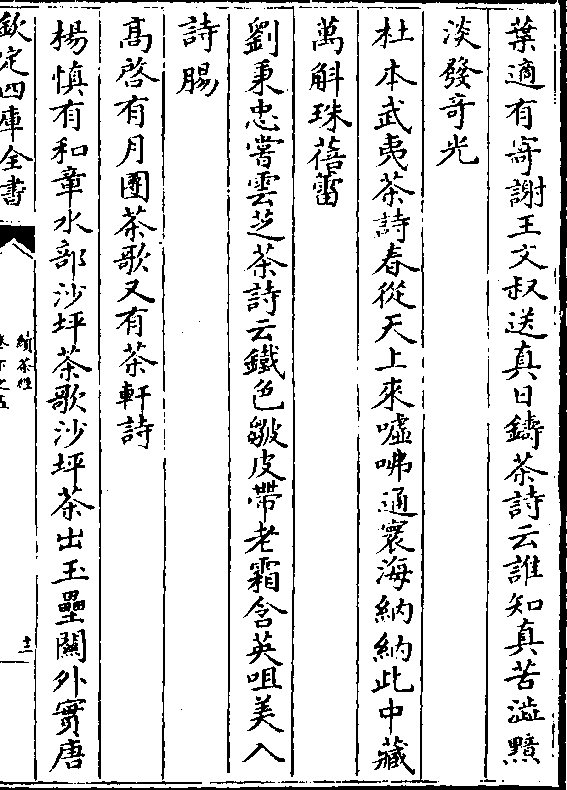 葉適有寄謝王文叔送真日鑄茶詩云誰知真苦澁黯
淡發奇光
杜本武夷茶詩春從天上來噓咈通寰海納納此中藏
萬斛珠蓓蕾
劉秉忠嘗雲芝茶詩云鐵色皺皮帶老霜含英咀美入
詩腸
髙啓有月團茶歌又有茶軒詩
楊慎有和章水部沙坪茶歌沙坪茶出玉壘關外實唐
欽定四庫全書
續茶經
卷下之五
十三